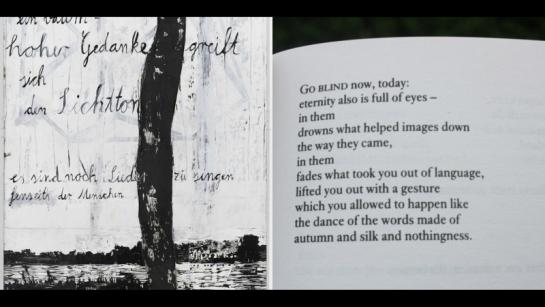 ein Baum-
hoher Gedanke greift
sich
den Lichtton
es sind noch Lieder zu singen
jenseits der Menschen
GO BLIND now, today:
eternity also is full of eyes –
in them
drowns what helped images down
the way they came,
in them
fades what took you out of language,
lifted you out with a gesture
which you allowed to happen like
the dance of the words made of
autumn and silk and nothingness.